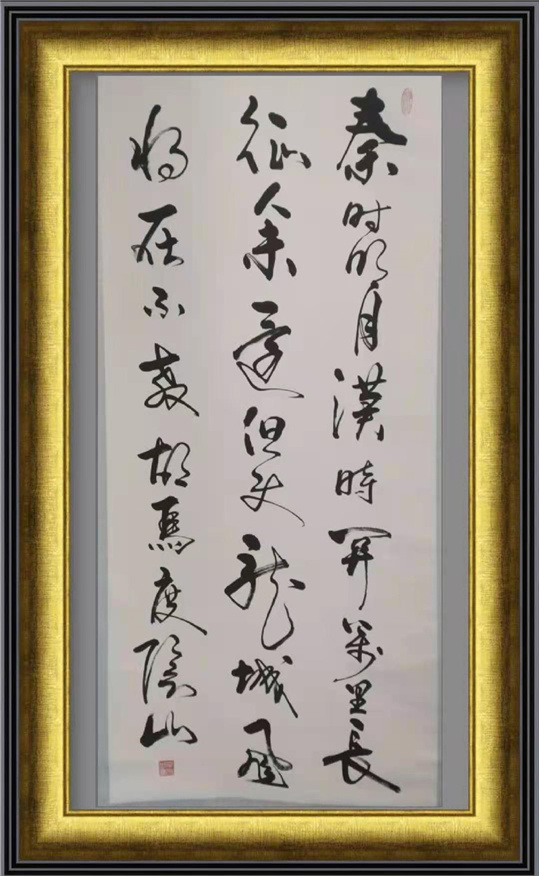 秦时明月漢時關萬里長
征人未還但使龍城飛
將在不教胡馬度陰山